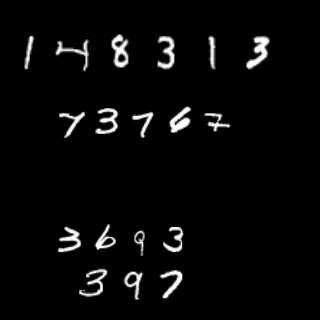 148313
73767
3693
397